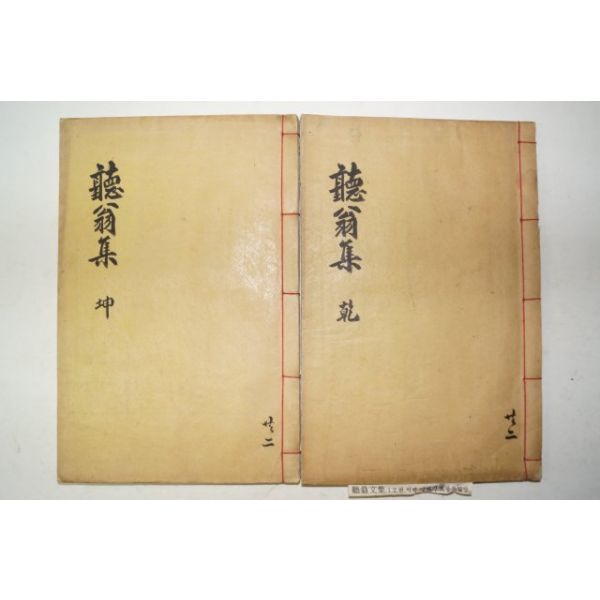 聽翁集
乾
共二
聽翁集
坤
共二
聽翁文集